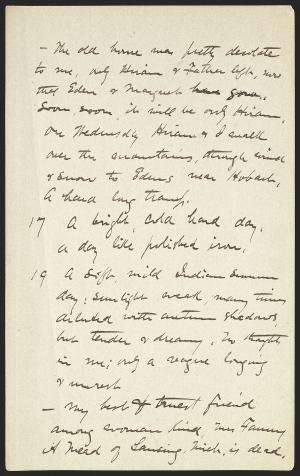 - The old home was pretty desolate
to me, only Hiram & Father left, now
that Eden & Margaret have gone.
Soon, soon, it will be only Hiram.
On Wednesday Hiram & I walk
over the mountains, through wind
& snow to Eden's near Hobart.
A hard long tramp.
17 A bright, cold hard day,
a day like polished iron.
19 A soft, mild Indian summer
day; sunlight weak, many times
diluted with autumn shadows,
but tender & dreamy. No thought
in me; only a vague longing
& unrest
- My best & truest friend
among woman kind, Mrs Fanny
A Mead of Lansing, Mich, is dead.